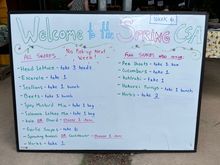 Week 6
Welcome to the Spring CSA
ALL SHARES
No Pick-up Next Week!
FULL SHARES ALSO RECEIVE:
Head Lettuce - take 3 heads
Escarole - take 1
Scallions - take 1 bunch
Beets - take 1 bunch
Spicy Mustard Mix - take 1 bag
Salanova Lettuce Mix - take 1 bag
Kale OR Chard - choose 1 item
Garlic Scapes - take 6
Sprouting Broccoli OR Cauliflower - choose 1 item
Herbs - take 1
Pea Shoots - take 1 box
Cucumbers - take 2
Kohlrabi - take 1
Hakurei Turnips - take 1 bunch
Herbs - take 2